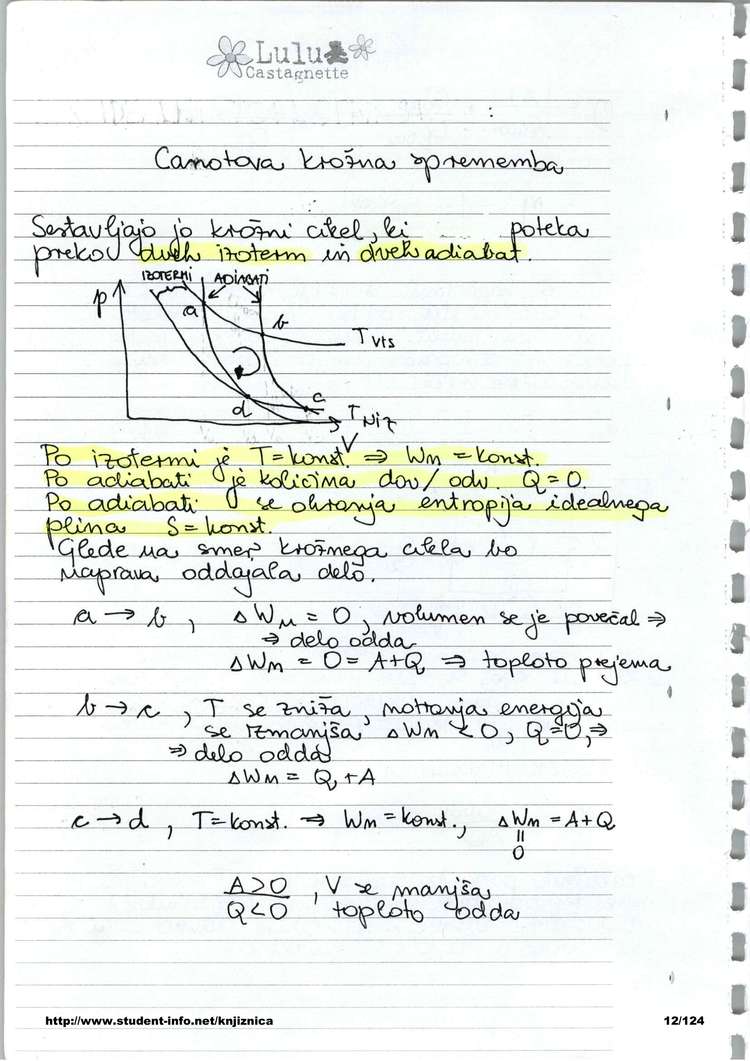 Lulu
Castagnette
Carnotova krožna sprememba
Sestavljajo jo krožni cikel, ki poteka
preko dveh izoterm in dveh adiabat.
IZOTERMI ADIABATI
p
a
b
T VIS
c
d
T NIZ
V
Po izotermi je T = konst. ⇒ Wn = konst.
Po adiabati je količina dov/odv. Q = 0.
Po adiabati se ohranja entropija idealnega
plina S = konst.
Glede na smer krožnega cikla bo
naprava oddajala delo.
a → b, ΔWn = 0, volumen se je povečal ⇒
⇒ delo odda
ΔWn = 0 = A+Q ⇒ toploto prejema
b → c, T se zniža, notranja energija
se zmanjša ΔWn < 0, Q=0, ⇒
⇒ delo odda
ΔWn = Q + A
c → d, T = konst. ⇒ Wn = konst., ΔWn = A+Q
=
0
A>0, V se manjša
Q<0 toploto odda
http://www.student-info.net/knjiznica 12/124